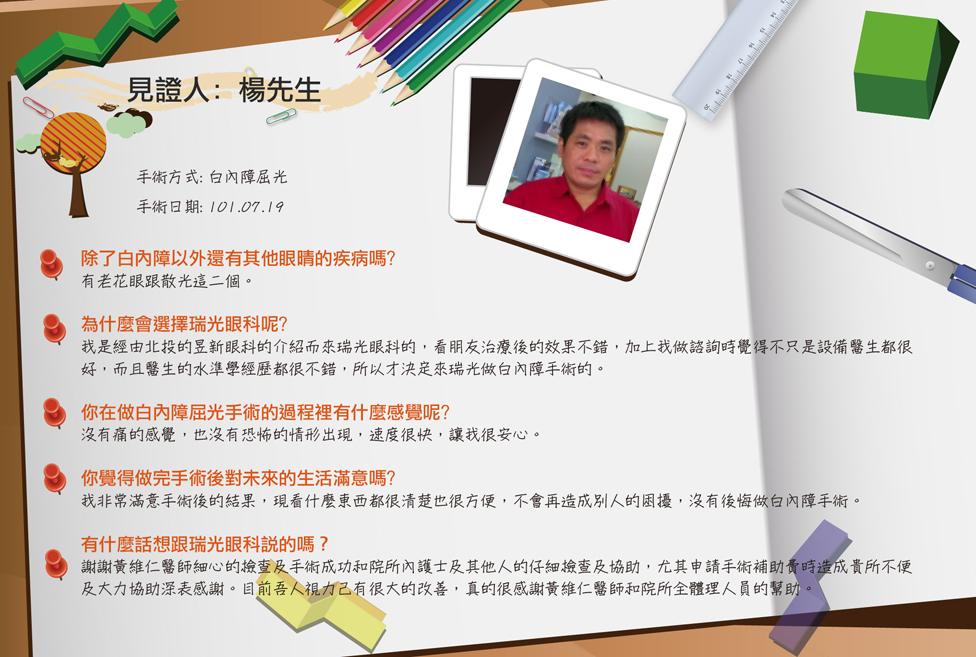 見證人: 楊先生
手術方式: 白內障屈光
手術日期: 101.07.19
除了白內障以外還有其他眼睛的疾病嗎?
有老花眼跟散光這二個。
為什麼會選擇瑞光眼科呢?
我是經由北投的昱新眼科的介紹而來瑞光眼科的，看朋友治療後的效果不錯，加上我做諮詢時覺得不只是設備醫生都很
好，而且醫生的水準學經歷都很不錯，所以才決定來瑞光做白內障手術的。
你在做白內障屈光手術的過程裡有什麼感覺呢?
沒有痛的感覺，也沒有恐怖的情形出現，速度很快，讓我很安心。
你覺得做完手術後對未來的生活滿意嗎?
我非常滿意手術後的結果，現看什麼東西都很清楚也很方便，不會再造成別人的困擾，沒有後悔做白內障手術。
有什麼話想跟瑞光眼科說的嗎？
謝謝黃維仁醫師細心的檢查及手術成功和院所內護士及其他人的仔細檢查及協助，尤其申請手術補助費時造成貴所不便
及大力協助深表感謝。目前吾人視力已有很大的改善，真的很感謝黃維仁醫師和院所全體理人員的幫助。